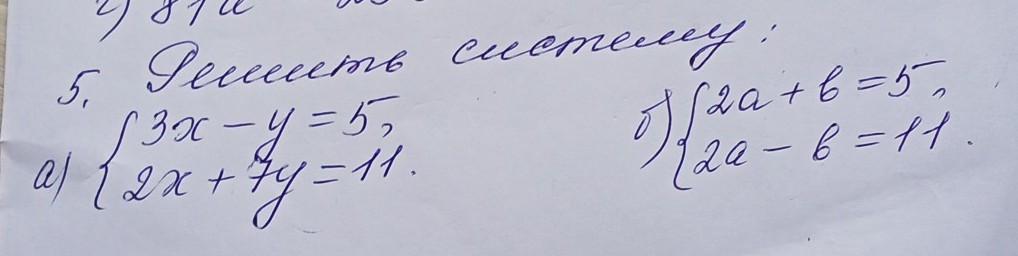 5. Решить систему:
а) { 3x - y = 5,
2x + 7y = 11.
б) { 2a + b = 5,
2a - b = 11.